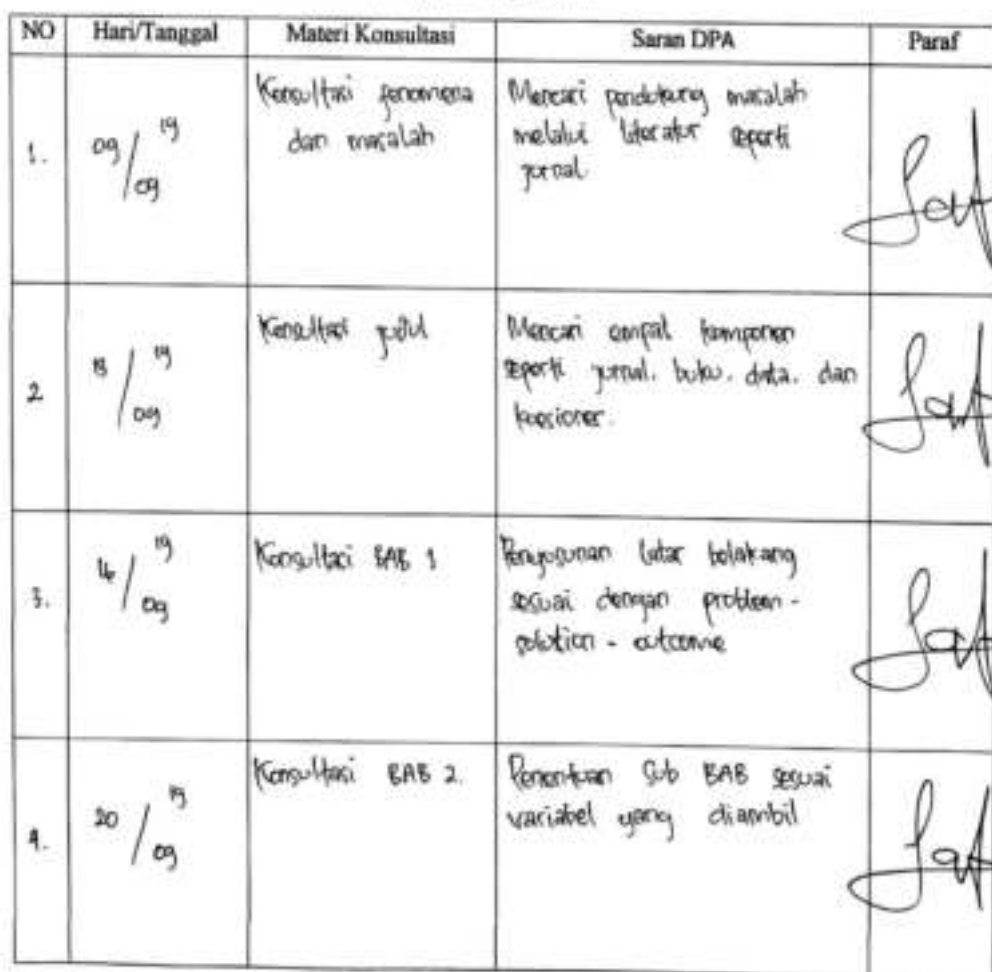 NO Hari/Tanggal Materi Konsultasi Saran DPA Paraf
1. 09/09 19 Konsultasi fenomena Mencari pendukung masalah
dan masalah melalui literatur seperti
jurnal.
2 /09 19 Konsultasi judul Mencari empat komponen
seperti jurnal, buku, data, dan
koesioner.
3. 16/09 19 Konsultasi BAB 1 Penyusunan latar belakang
sesuai dengan problem -
solution - outcome
4. 20/09 19 Konsultasi BAB 2. Penentuan Sub BAB sesuai
variabel yang diambil